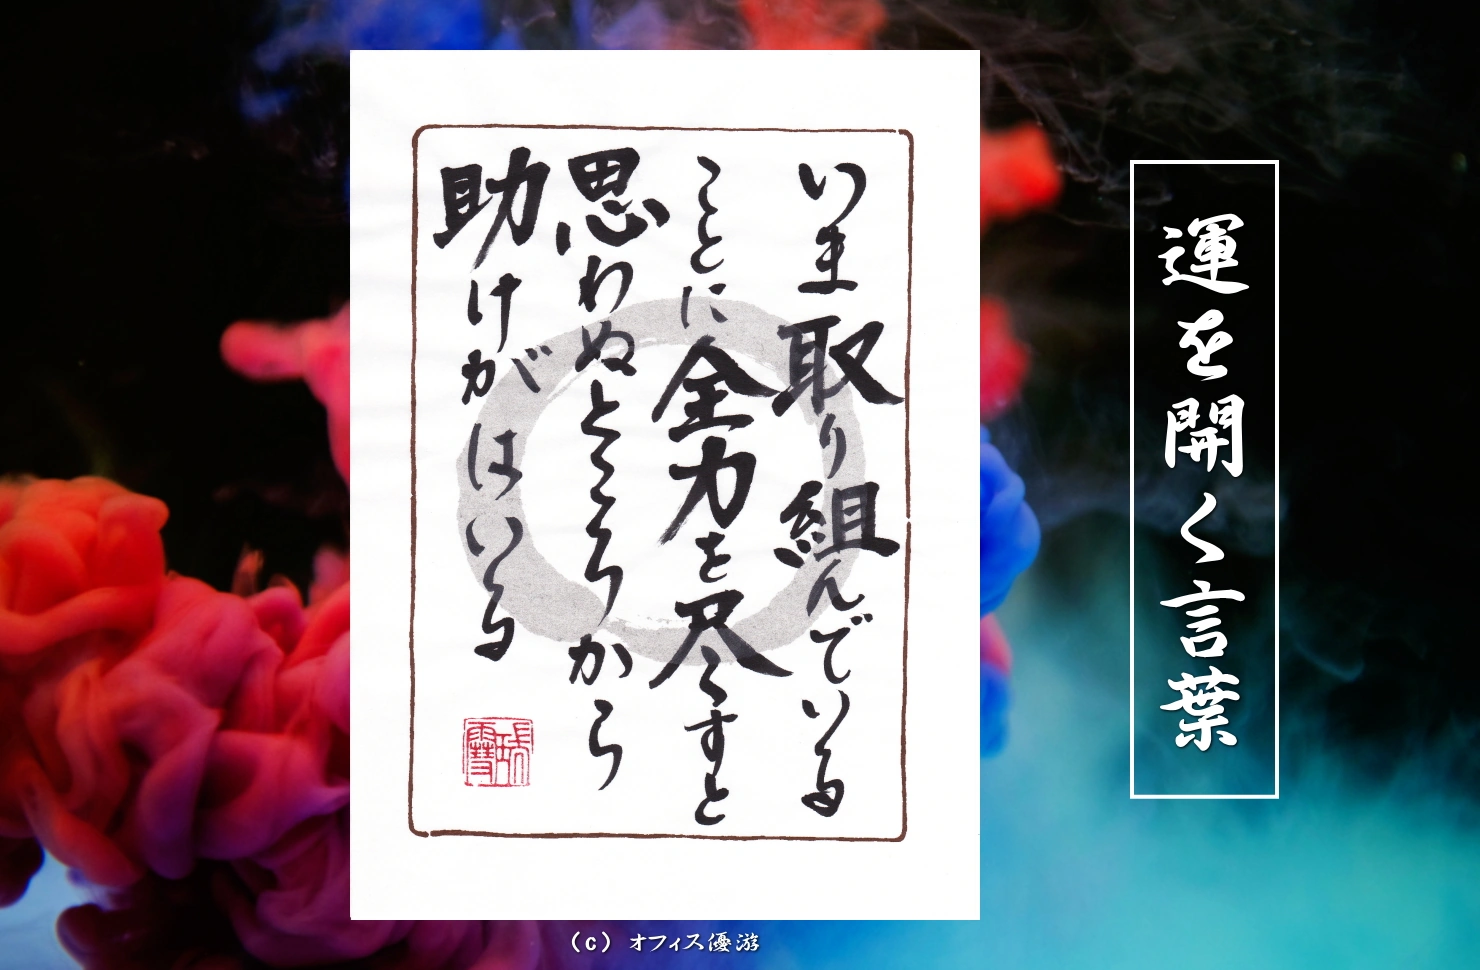 運を開く言葉
いま取り組んでいる
ことに全力を尽くすと
思わぬところから
助けがはいる
(c) オフィス優游